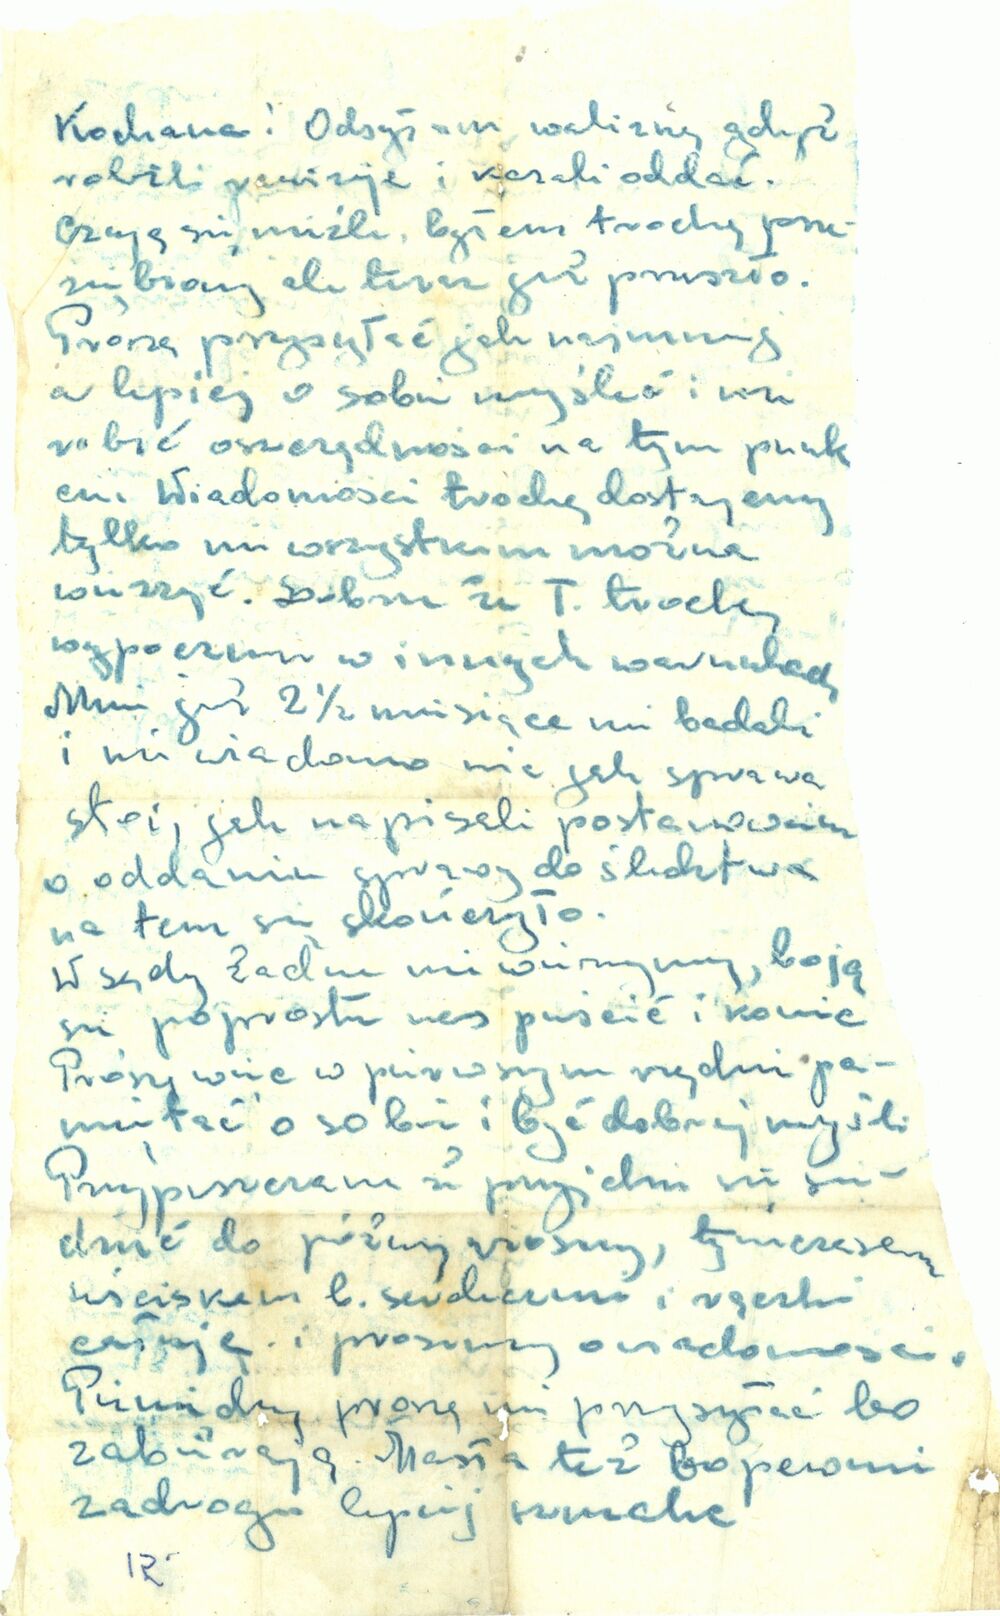 Kochana! Odsyłam walizkę gdyż
robili rewizje i kazali oddać.
Czuję się nieźle, byłem trochę prze-
ziębiony ale teraz już przeszło.
Proszę przysyłać jak najmniej
a lepiej o sobie myśleć i nie
robić oszczędności na tym punk
cie. Wiadomości trochę dostajemy
tylko nie wszystkiem można
wierzyć. Dobrze że T. trochę
wypocznie w innych warunkach
Mnie już 2½ miesiące nie badali
i nie wiadomo nic jak sprawa
stoi, jak napisali postanowienie
o oddaniu sprawy do śledztwa
na tem się skończyło.
W sądy żadne nie wierzymy, boją
się poprostu nas puścić i koniec
Proszę więc w pierwszym rzędzie pa-
miętać o sobie i być dobrej myśli
Przypuszczam że przyjdzie nie sie-
dzieć do późnej wiosny, tymczasem
uściskam b. serdecznie i rączki
całuję. i prosimy o wiadomości.
Pieniędzy proszę nie przysyłać bo
zabierają. Masła też bo pewnie
zadrogie lepiej szmalec
12